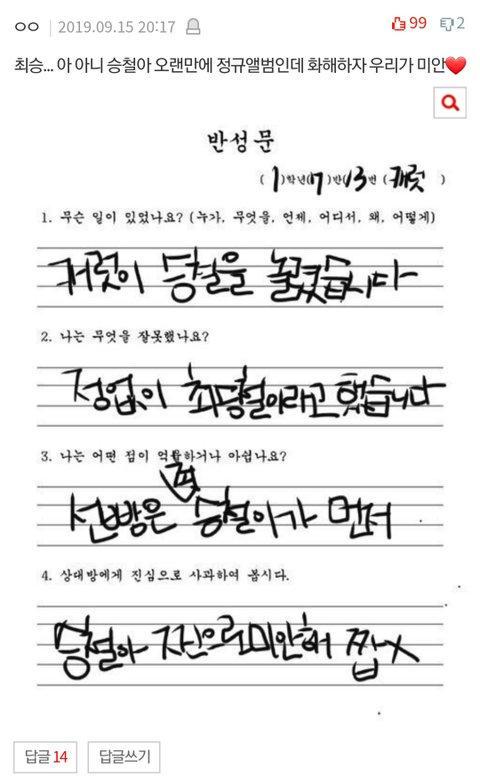 ㅇㅇ 2019.09.15 20:17 99 2
최승... 아 아니 승철아 오랜만에 정규앨범인데 화해하자 우리가 미안❤️
반성문
(1)학년(17)반(13)번 (캐럿)
1. 무슨 일이 있었나요? (누가, 무엇을, 언제, 어디서, 왜, 어떻게)
캐럿이 승철을 놀렸습니다
2. 나는 무엇을 잘못했나요?
정없이 최승철이라고 했습니다
3. 나는 어떤 점이 억울하거나 아쉽나요?
선빵은 승철이가 먼저
4. 상대방에게 진심으로 사과하여 봅시다.
승철아 미안해
답글 14 답글쓰기